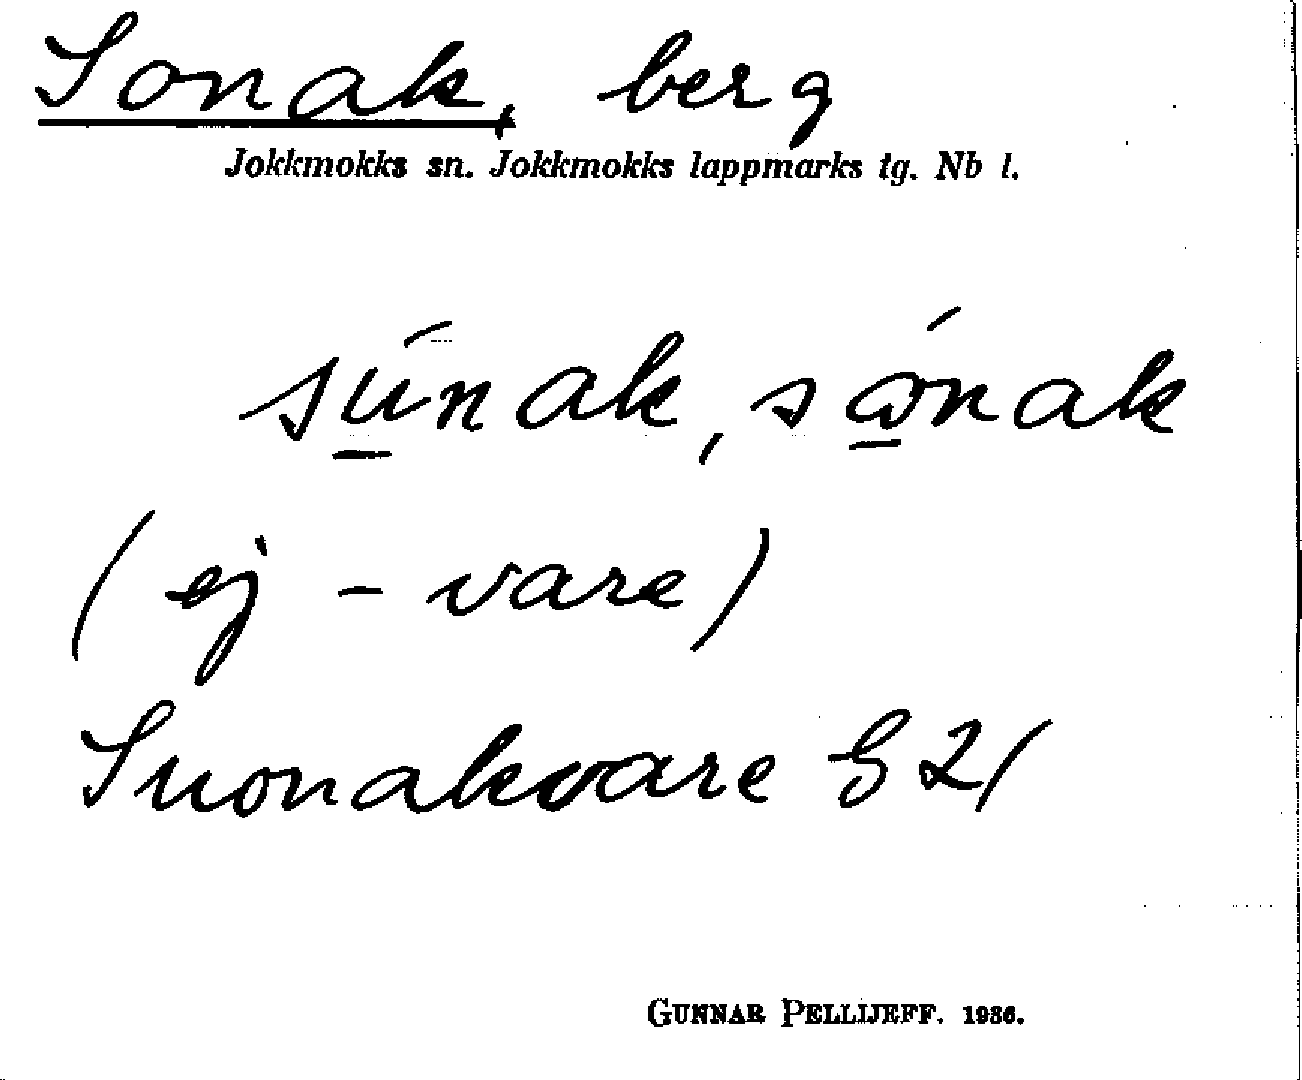 Sonak, berg
Jokkmokks sn. Jokkmokks lappmarks tg. Nb l.
sú̲nak, sώ̲nak
(ej - vare)
Suonakvare G 21
GUNNAR PELLIJEFF. 1936.